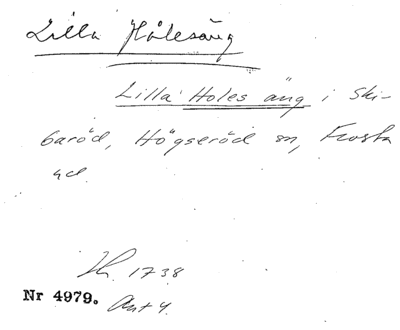 Lilla Hålesäng
Lilla Holes äng i Ski-
baröd, Högseröd sn, Frosta
hd.
1738
Nr 4979. Akt 4.